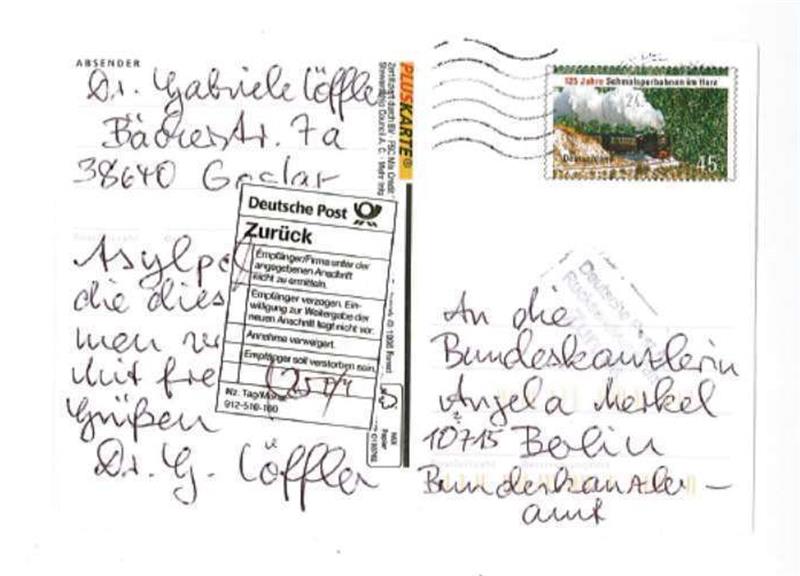 ABSENDER
Dr. Gabriele Löffler
Bäckerstr. 7a
38640 Goslar
Asylpo
die dies
men
Mit fre
Grüßen
Dr. G. Löffler
PLUSKARTE®
Deutsche Post
Zurück
Empfänger/Firma unter der
angegebenen Anschrift
nicht zu ermitteln.
Empfänger verzogen. Ein-
willigung zur Weitergabe der
neuen Anschrift liegt nicht vor.
Annahme verweigert.
Empfänger soll verstorben sein.
Nz. Tag/Monat
912-516-100
125 Jahre Schmalspurbahnen im Harz
Deutschland
45
Deutsche Post
An die
Bundeskanzlerin
Angela Merkel
10715 Berlin
Bundeskanzler-
amt